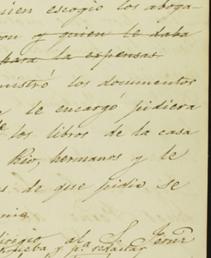 uien escogio los aboga-
on y quien le daba
para la expensas
nistró los documentos
le encargó pidiera
los libros de la casa
Rio, hermanos y le
s de que pidio se
dirigio al S.
prueba y pª redactar